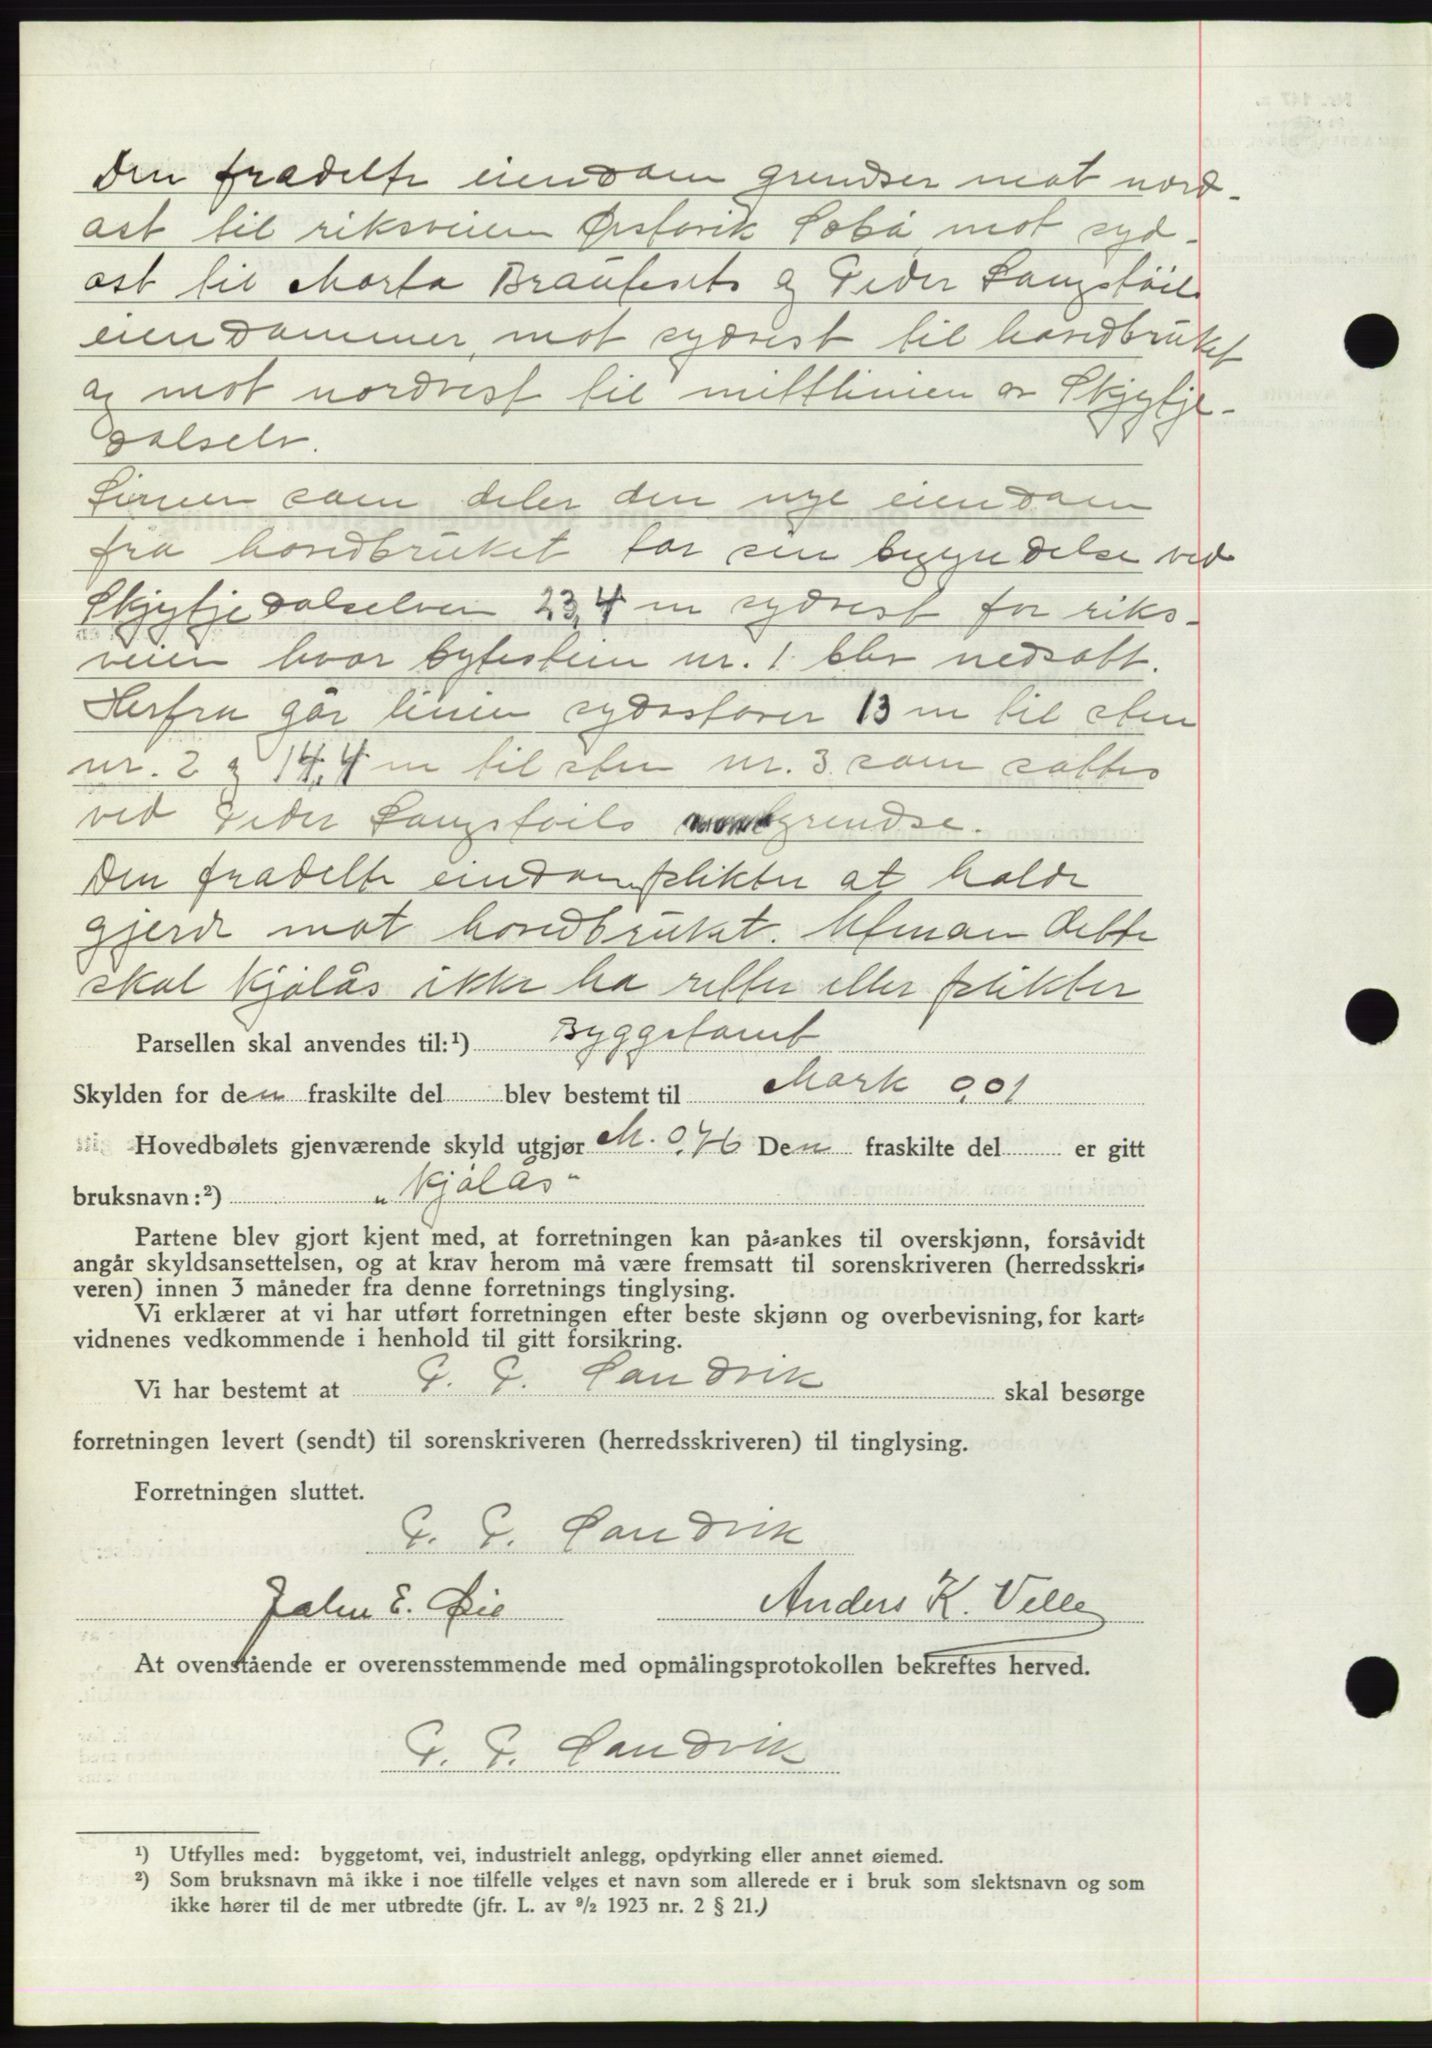 Den fradelte eiendom grendser mot nord-
ost til riksveien Ørstavik Sæbø, mot syd-
ost til Marta Brautesets og Peder Langstøils
eiendommer, mot sydvest til hovedbruket
og mot nordvest til mittlinien av Skjytje-
dalselv.
Linien som deler den nye eiendom
fra hovedbruket tar sin begyndelse ved
Skjytjedalselven 23,4 m sydvest for riks-
veien hvor bytestein nr. 1 blev nedsatt.
Herfra går linien sydostover 13 m til sten
nr. 2 og 14,4 m til sten nr. 3 som sattes
ved Peder Langstøils grendse.
Den fradelte eiendom plikter at holde
gjerde mot hovedbruket. Utenom dette
skal Kjølås ikke ha retter eller plikter
Parsellen skal anvendes til:¹) Byggetomt
Skylden for den fraskilte del blev bestemt til Mark 0,01
Hovedbølets gjenværende skyld utgjør M. 0,76 Den fraskilte del er gitt
bruksnavn:²) „Kjølås"
Partene blev gjort kjent med, at forretningen kan på-ankes til overskjønn, forsåvidt
angår skyldsansettelsen, og at krav herom må være fremsatt til sorenskriveren (herredsskri-
veren) innen 3 måneder fra denne forretnings tinglysing.
Vi erklærer at vi har utført forretningen efter beste skjønn og overbevisning, for kart-
vidnenes vedkommende i henhold til gitt forsikring.
Vi har bestemt at P. P. Sandvik skal besørge
forretningen levert (sendt) til sorenskriveren (herredsskriveren) til tinglysing.
Forretningen sluttet.
P. P. Sandvik
John E. Øie Anders K. Velle
At ovenstående er overensstemmende med opmålingsprotokollen bekreftes herved.
P. P. Sandvik
¹) Utfylles med: byggetomt, vei, industrielt anlegg, opdyrking eller annet øiemed.
²) Som bruksnavn må ikke i noe tilfelle velges et navn som allerede er i bruk som slektsnavn og som
ikke hører til de mer utbredte (jfr. L. av 9/2 1923 nr. 2 § 21.)